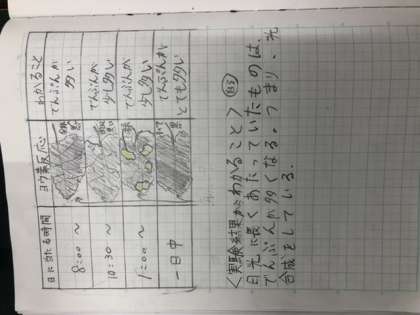 日に当たる時間 ヨウ素反応 わかること
8:00〜 でんぷんが多い
10:30〜 でんぷんが少し多い
1:00〜 でんぷんが少し多い
一日中 でんぷんがとても多い
<実験結果からわかること>
日光に長くあたっていたものは、
でんぷんが多くなる。つまり、光
合成をしている。